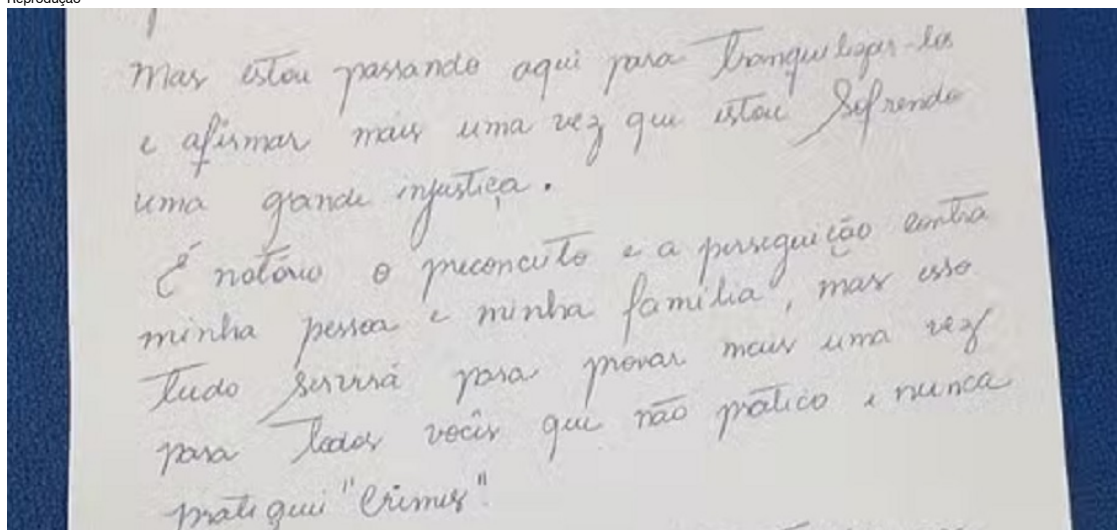 Reprodução
Mas estou passando aqui para Tranquilizar-los
e afirmar mais uma vez que estou Sofrendo
uma grande injustiça.
É notório o preconceito e a perseguição contra
minha pessoa e minha família, mas isso
Tudo servirá para provar mais uma vez
para Todos vocês que não prático e nunca
pratiquei "Crimes".